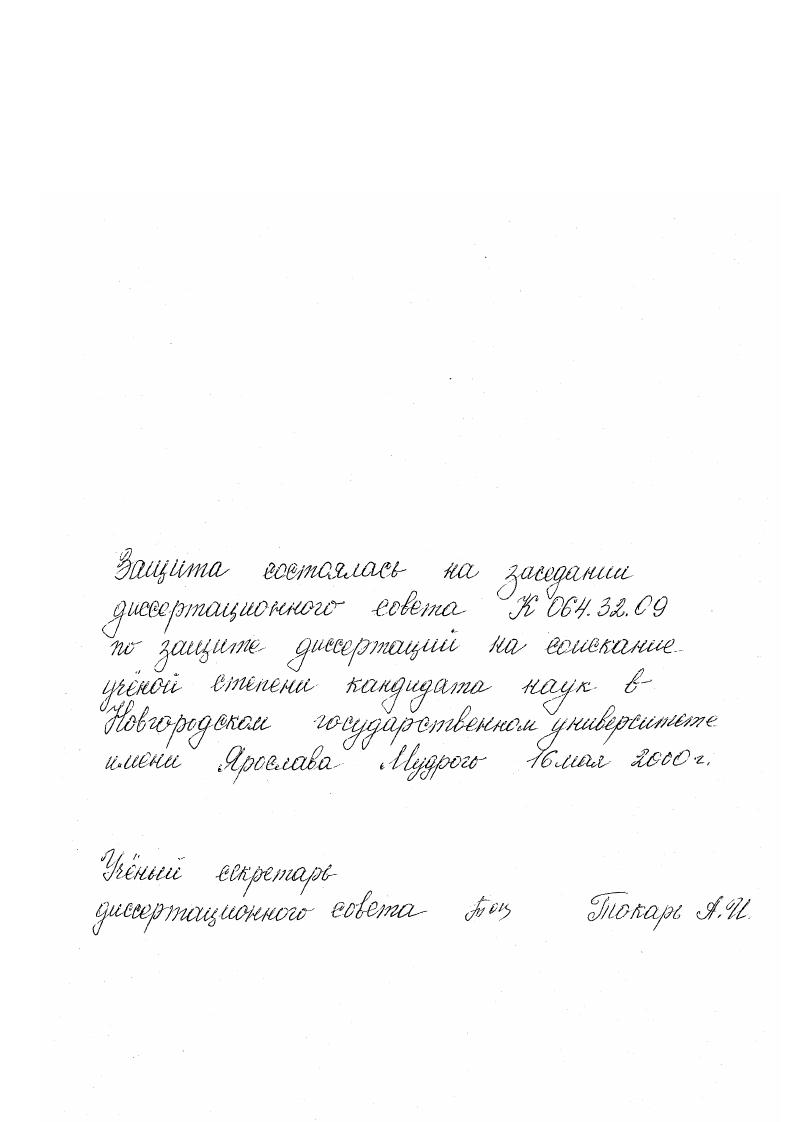 Защита состоялась на заседании
диссертационного совета К 064.32.09
по защите диссертаций на соискание
учёной степени кандидата наук в
Новгородском государственном университете
имени Ярослава Мудрого 16 мая 2000 г.
Учёный секретарь
диссертационного совета Токарь А.И.